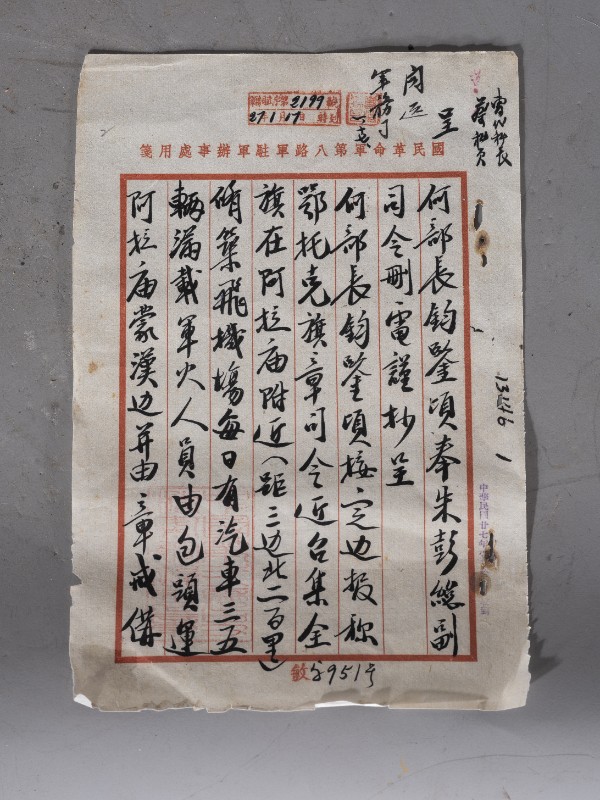 國民革命軍第八路軍駐軍辦事處用箋
呈
軍務司
2199
27 1 17
何部長鈞鑒頃奉朱彭總副
司令刪電謹抄呈
何部長鈞鑒頃接定边報称
鄂托克旗章司令近召集全
旗在阿拉庙附近(距三边北二百里)
脩築飛機場每日有汽車三五
輛滿載軍火人員由包頭運
阿拉庙蒙漢边并由章戒俻
字951号
13546
中華民國廿七年